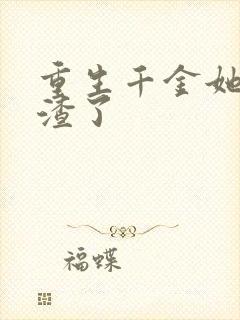 重生千金她
渣了
福蝶